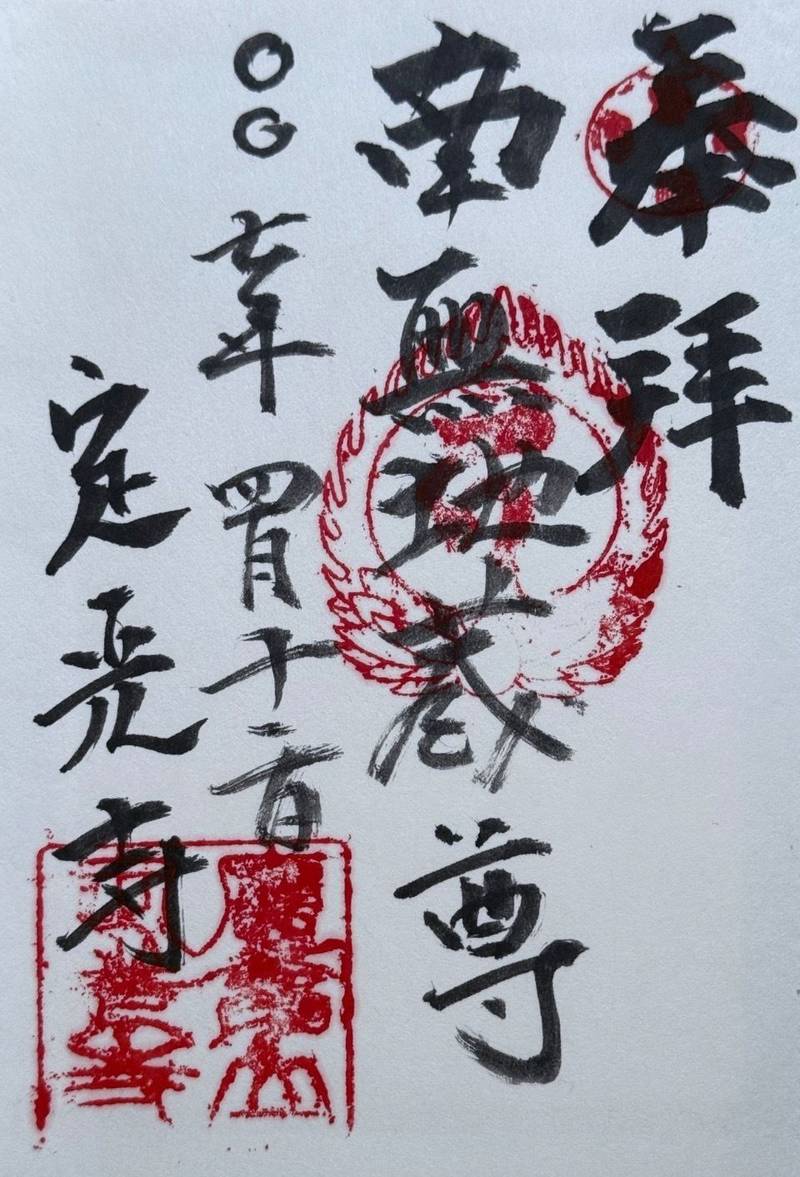 奉拝
南無地蔵尊
〇〇七年四月十二日
定光寺